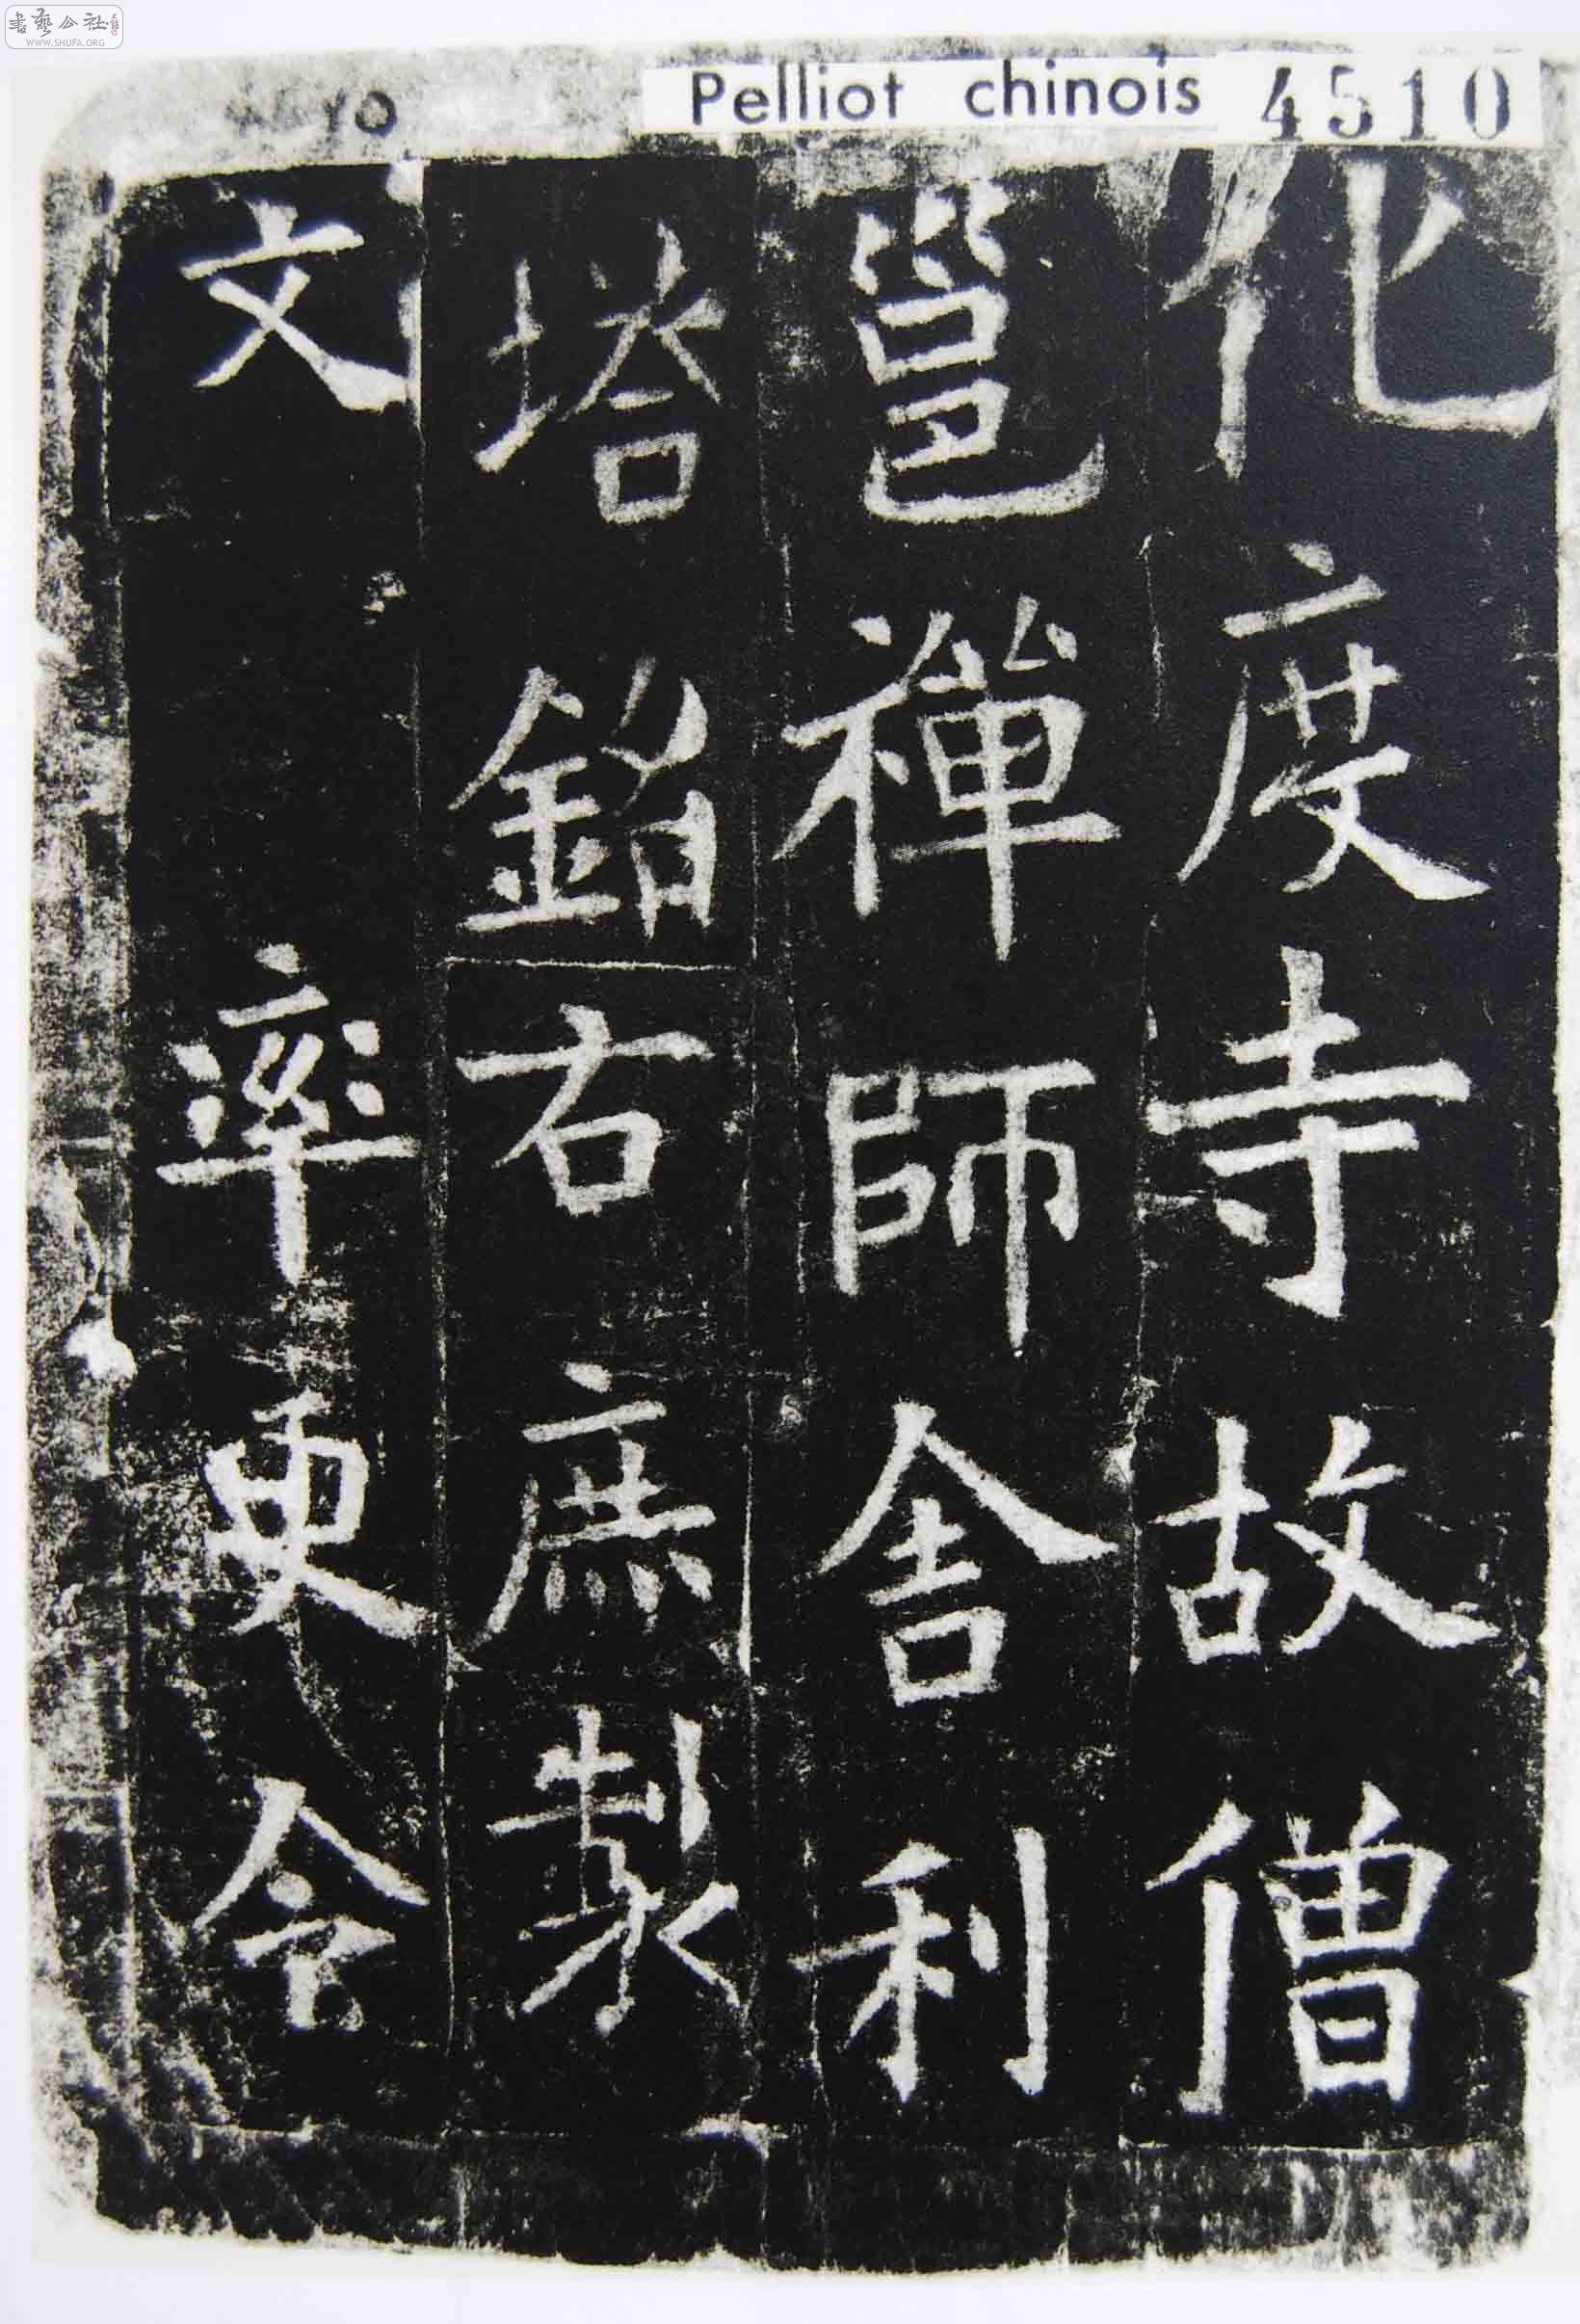 書藝公社
WWW.SHUFA.ORG
Pelliot chinois 4510
10
化度寺故僧
邕禪師舍利
塔銘右庶製
文 率更令